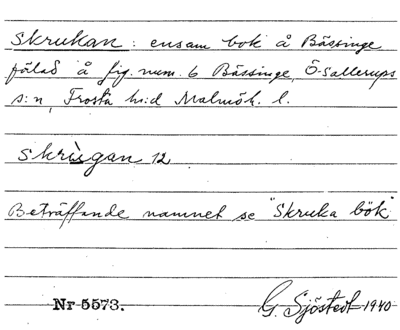 Skrukan: ensam bok å Bässinge
fälad å fig. num. 6 Bässinge, Ö-Sallerups
s:n, Frosta h:d Malmöh. l.
skrùgan 12
Beträffande namnet se "Skruka bök"
Nr 5573. G. Sjöstedt 1940